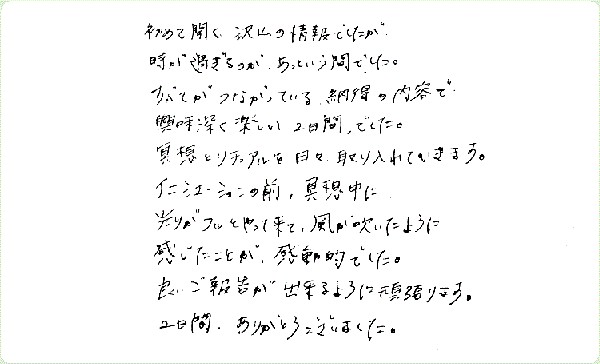 初めて聞く、沢山の情報でしたが、
時が過ぎるのが、あっという間でした。
すべてがつながっている、納得の内容で
興味深く楽しい2日間、でした。
瞑想とリチュアルを日々、取り入れていきます。
イニシエーションの前、瞑想中に
光りがフワッとやって来て、風が吹いたように
感じたことが、感動的でした。
良いご報告が出来るように頑張ります。
2日間、ありがとうございました。